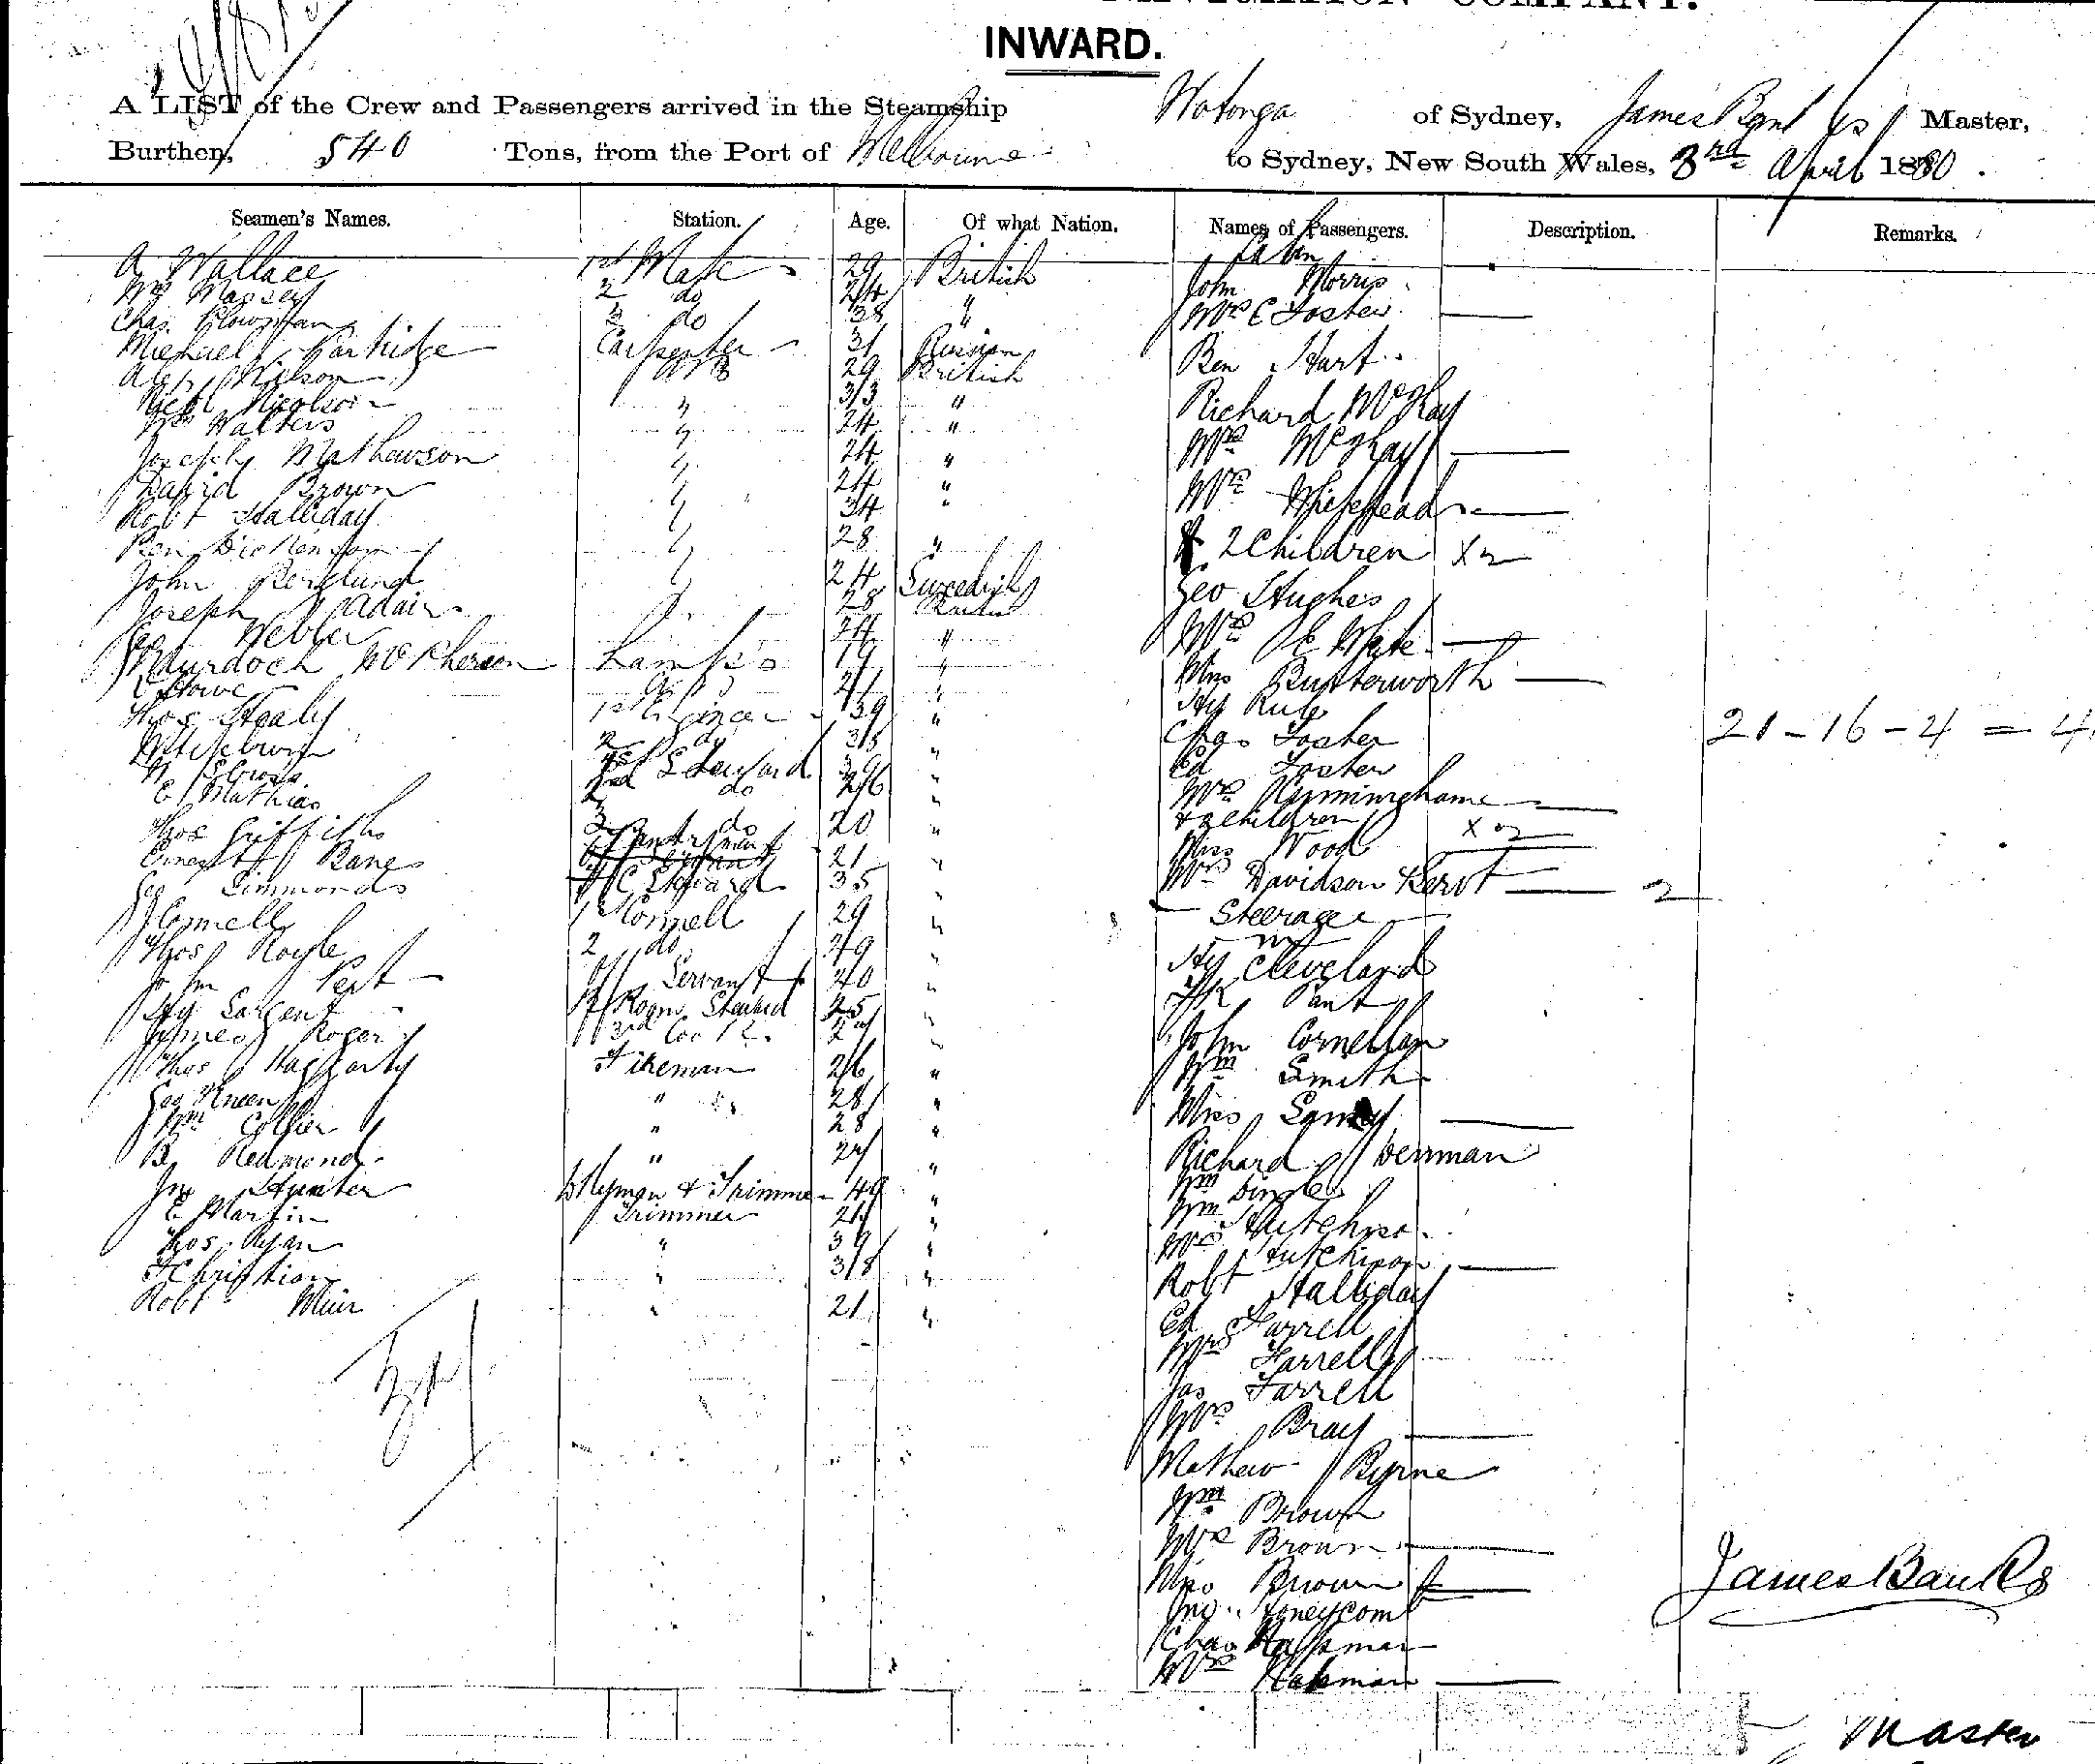 INWARD.
A LIST of the Crew and Passengers arrived in the Steamship Wotonga of Sydney, James Banks Master,
Burthen, 540 Tons, from the Port of Melbourne to Sydney, New South Wales, 3rd April 1880.
Seamen's Names. Station. Age. Of what Nation. Names of Passengers. Description. Remarks.
Cabin
A Wallace 1st Mate 29 British John Morris
Wm Massey 2 do 24 " Mrs C Foster
Chas Plowman 3 do 38 "
Michael Partridge Carpenter 31 Russian Ben Hart
Alex Wilson AB 29 British
Nicol Nicolson " 33 " Richard McKay
Wm Walters " 24 "
Joseph Mathewson " 24 " Mrs McKay
David Brown " 24 " Mrs Whitehead
Robt Halliday " 34 "
Ben Dickenson " 28 " & 2 Children X 2
John Berglund " 24 Swedish Geo Hughes
Joseph Adair " 28 British
Geo Webber 24 " Mrs E White
Murdoch McPherson Lamps 19 " Miss Butterworth
C Howe 21 " Hy Rule
Thos Healy 1st Engineer 39 " Chas Foster
21 - 16 - 4 = 4
2 do 35 " Ed Foster
W Cross Steward " Mrs Berminghame
E Mathias 2 do 26 " & 2 Children X 2
Thos Griffiths 3 do 20 " Miss Wood
Ernest Bane Pantryman 21 " Mrs Davidson & Servt 2
Geo Simmonds F C Steward 35 " Steerage
J Connell 1st Cook 29 " Hy Cleveland
Thos Royle 2 do 49 " Pant
John Pert Servant 40 " John Cornellan
Hy Sargent F Room Steward 25 " Wm Smith
James Roger 3rd Cook " Miss
Thos Haggarty Fireman 26 " Richard
Geo Kneen " 28 " Wm Dingle
Wm Collier " 28 " Wm Hutchison
B Redmond " 24 " Mrs Hutchison
Jno Hunter & Trimmer 49 " Robt Halliday
E Martin Trimmer 21 " Ed Farrell
Thos Ryan " " Mrs Farrell
F Christian " 38 " Jas Farrell
Robt Muir " 21 " Mrs Bray
Mathew Byrne
Wm Brown
Mrs Brown
Miss Brown
Jno Honeycomb
Chas Hakman
Mrs Hakman
James Banks
Master